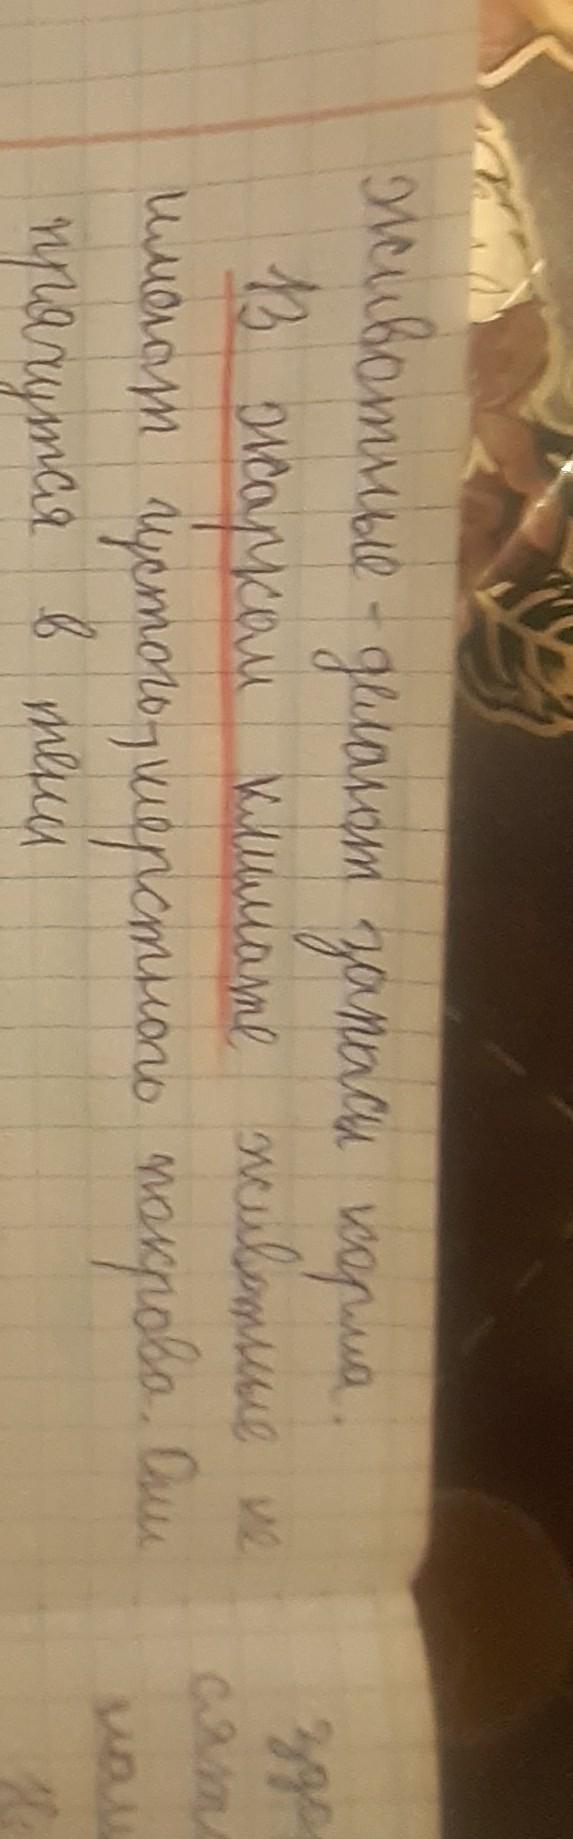 животные - делают запасы корма.
В жарком климате животные не
имеют густого, шерстного покрова. Они
прячутся в тени